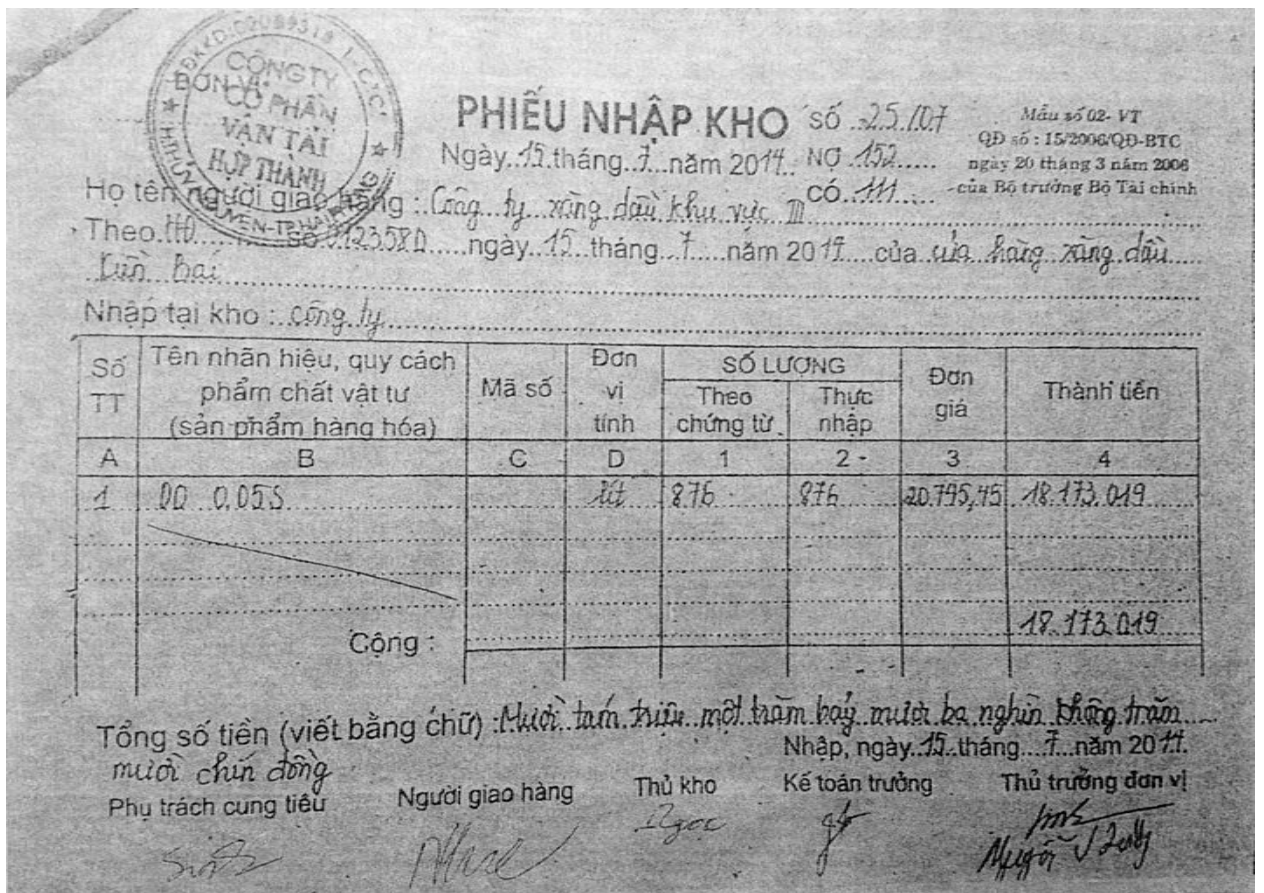 ĐƠN VỊ:
CÔNG TY
CỔ PHẦN
VẬN TẢI
HỢP THÀNH
PHIẾU NHẬP KHO số 25/07
Mẫu số 02- VT
QĐ số : 15/2006/QĐ-BTC
ngày 20 tháng 3 năm 2006
của Bộ trưởng Bộ Tài chính
Ngày 15 tháng 7 năm 2014. NỢ 152
CÓ 111
Họ tên người giao hàng : Công ty xăng dầu khu vực III
Theo HĐ số 0123580 ngày 15 tháng 7 năm 2014 của cửa hàng xăng dầu
Nhập tại kho : công ty
Số TT Tên nhãn hiệu, quy cách phẩm chất vật tư (sản phẩm hàng hóa) Mã số Đơn vị tính SỐ LƯỢNG Theo chứng từ Thực nhập Đơn giá Thành tiền
A B C D 1 2 3 4
1 DO 0,05S lít 876 876 20.745,45 18.173.019
18.173.019
Cộng :
Tổng số tiền (viết bằng chữ) : Mười tám triệu một trăm bảy mươi ba nghìn không trăm
mười chín đồng
Nhập, ngày 15 tháng 7 năm 2014.
Phụ trách cung tiêu Người giao hàng Thủ kho Kế toán trưởng Thủ trưởng đơn vị
Ngọc